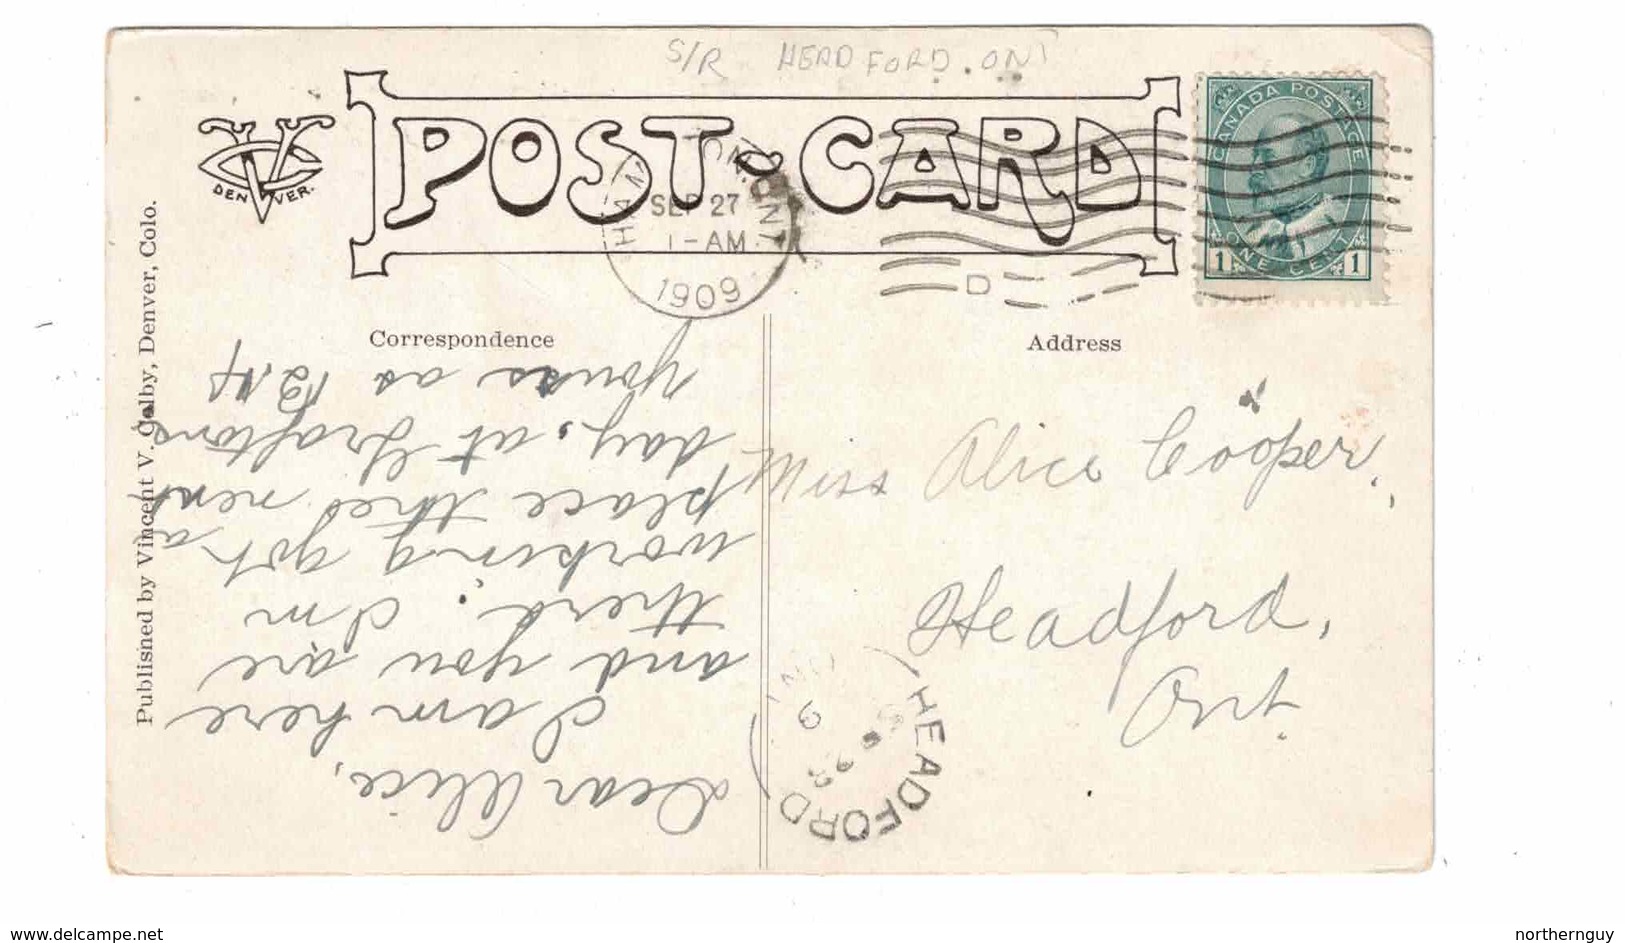 S/R HEADFORD. ONT
POST-CARD
DENVER.
CANADA POSTAGE
1 ONE CENT 1
HAMILTON. ONT.
SEP 27
1-AM
1909
D
Correspondence
Address
Miss Alice Cooper,
Headford,
Ont
Dear Alice,
I am here
and you are
there. Im
working got a
place the next
day, at Graftons
yours as
HEADFORD
ONT
28
9
Published by Vincent V. Colby, Denver, Colo.
www.delcampe.net
northernguy